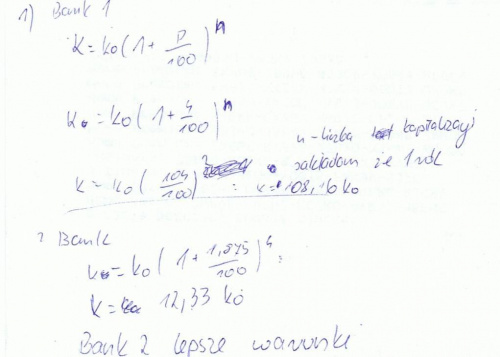 1) Bank 1
K = k0 ( 1 + p/100 )^n
K = k0 ( 1 + 4/100 )^n
n - liczba kapitalizacji
zakładam że 1 rok
K = k0 ( 104/100 )^2 : K = 108,16 k0
2 Bank
K = k0 ( 1 + 1,875/100 )^4 :
K = 12,33 k0
Bank 2 lepsze warunki